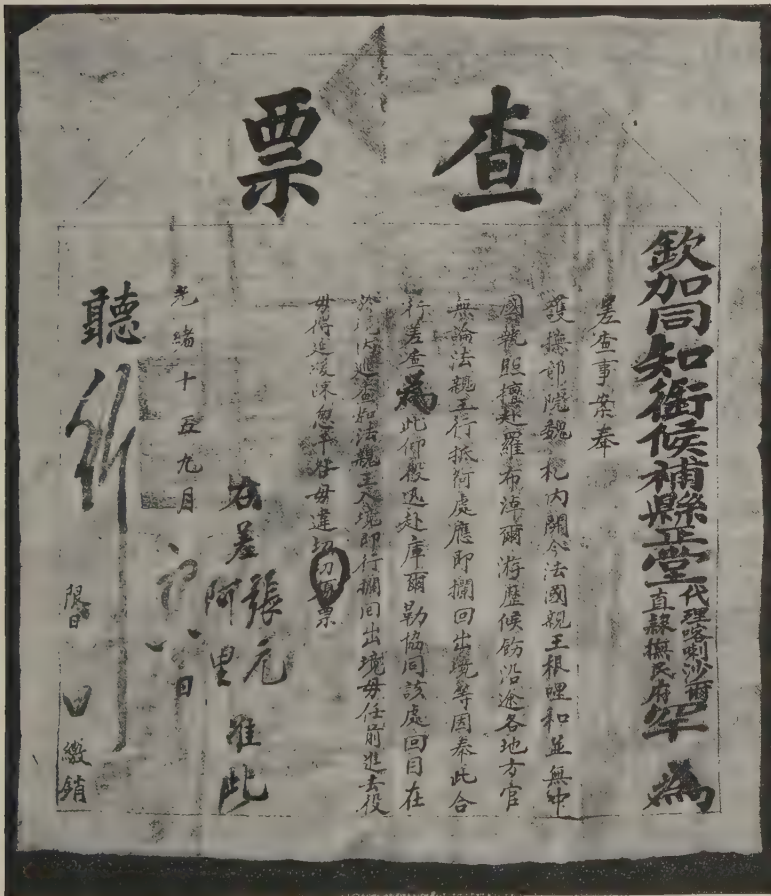 查票
欽加同知銜候補縣正堂代理喀喇沙爾直隸撫民府 為
差查事案奉
護撫部院魏 札內開今法國親王根哩和並無中
國執照擅赴羅布淖爾游歷候飭沿途各地方官
無論法親王行抵何處應即攔回出境等因奉此合
行差查為此仰役迅赴庫爾勒協同該處回目在
於 內 查如法親王入境即行攔回出境毋任前進去役
毋得遲滾踈忽干咎毋違切切須票
右差 張元 阿里 准此
光緒十五九月 日
聽
限日 日繳銷